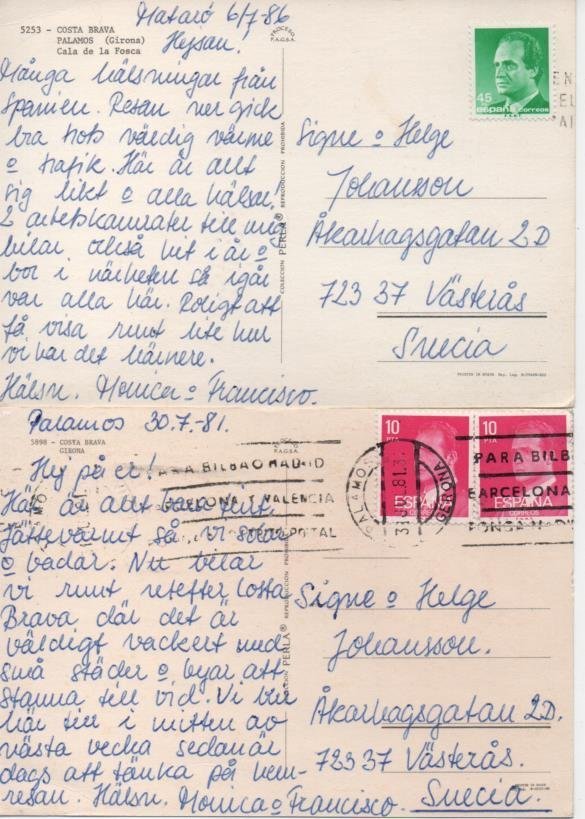 Mataró 6/7-86
5253 - COSTA BRAVA
PALAMOS (Girona)
Cala de la Fosca
Hejsan!
Många hälsningar från
Spanien. Resan ner gick
bra trots väldig värme
o trafik. Här är allt
sig likt o alla hälsar!
2 arbetskamrater till mig
bilar också hit i år o
bor i närheten så igår
var alla här. Roligt att
få visa runt lite hur
vi har det härnere.
Hälsn. Monica o Francisco.
PROCESO
F.A.G.S.A.
COLECCION PERLA® REPRODUCCION PROHIBIDA
45
españa correos
Signe o Helge
Johansson
Åkarhagsgatan 2D
723 37 Västerås
Suecia
PRINTED IN SPAIN
Palamos 30.7.-81.
5898 - COSTA BRAVA
GIRONA
Hej på er!
Här är allt bara fint.
Jättevarmt så vi solar
o badar. Nu bilar
vi runt efter Costa
Brava där det är
väldigt vackert med
små städer o byar att
stanna till vid. Vi blir
här till i mitten av
nästa vecka sedan är
dags att tänka på hem-
resan. Hälsn. Monica o Francisco.
F.A.G.S.A.
PERLA® REPRODUCCION PROHIBIDA
PARA BILBAO MADRID
BARCELONA Y VALENCIA
POSTAL
PALAMOS
GERONA
10
PTA
ESPAÑA
CORREOS
10
PTA
ESPAÑA
CORREOS
PARA BILB
BARCELONA
PONGA
Signe o Helge
Johansson.
Åkarhagsgatan 2D.
723 37 Västerås.
Suecia.